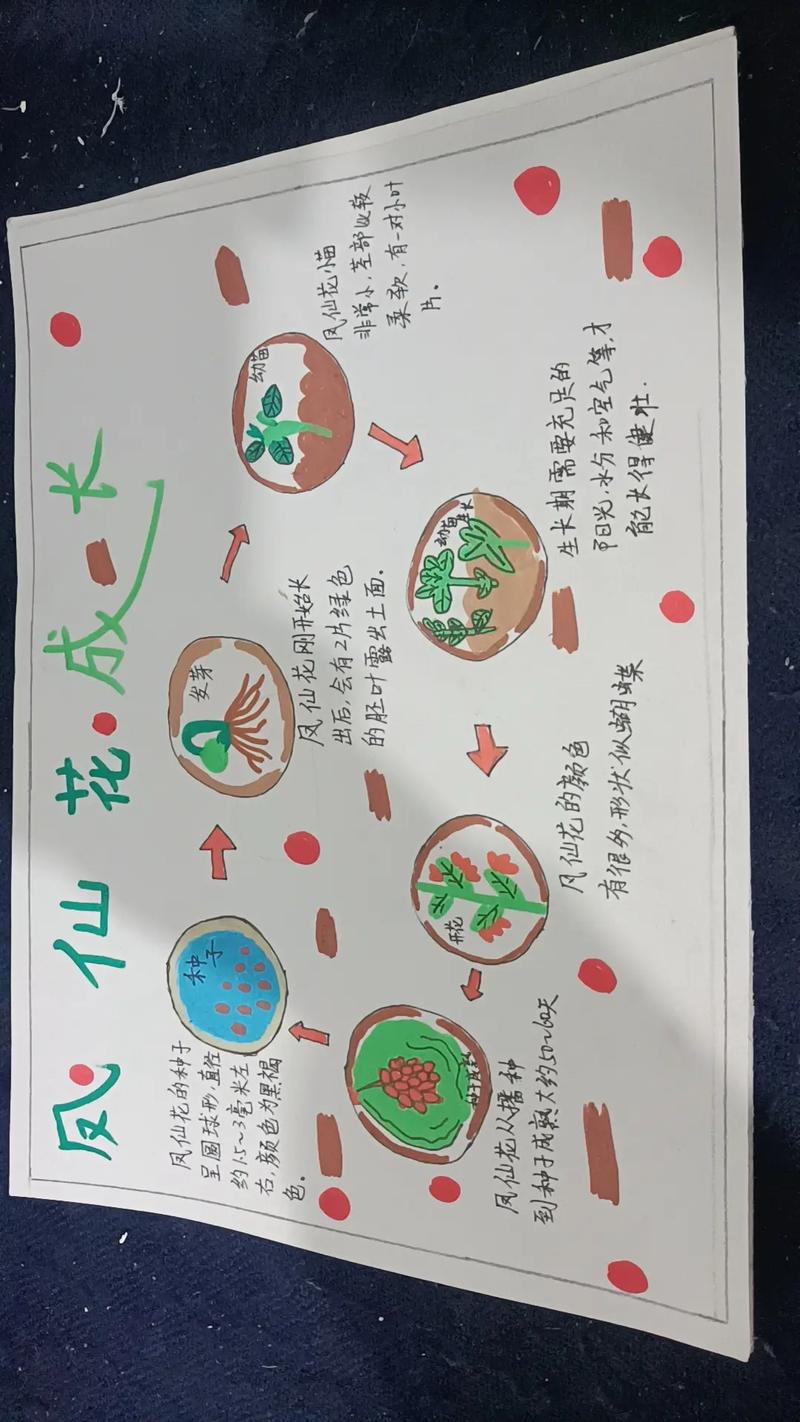 凤仙花成长
种子
凤仙花的种子
呈圆球形,直径
约1.5~3毫米左
右,颜色为黑褐
色。
发芽
凤仙花刚开始长
出后,会有2片绿色
的胚叶露出土面.
幼苗
凤仙花小苗
非常小,茎部比较
柔软,有一对小叶
片。
幼苗
生长
生长期需要充足的
阳光,水分和空气等,才
能长得健壮.
开花
凤仙花的颜色
有很多,形状似蝴蝶
种子成熟
凤仙花从播种
到种子成熟大约50~60天